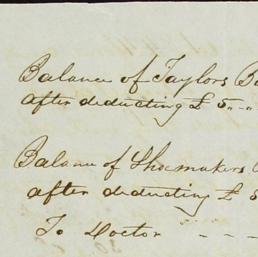 Balance of Taylors
after deducting £ 5 "
Balance of Shoemakers
after deducting £
To Doctor - - -